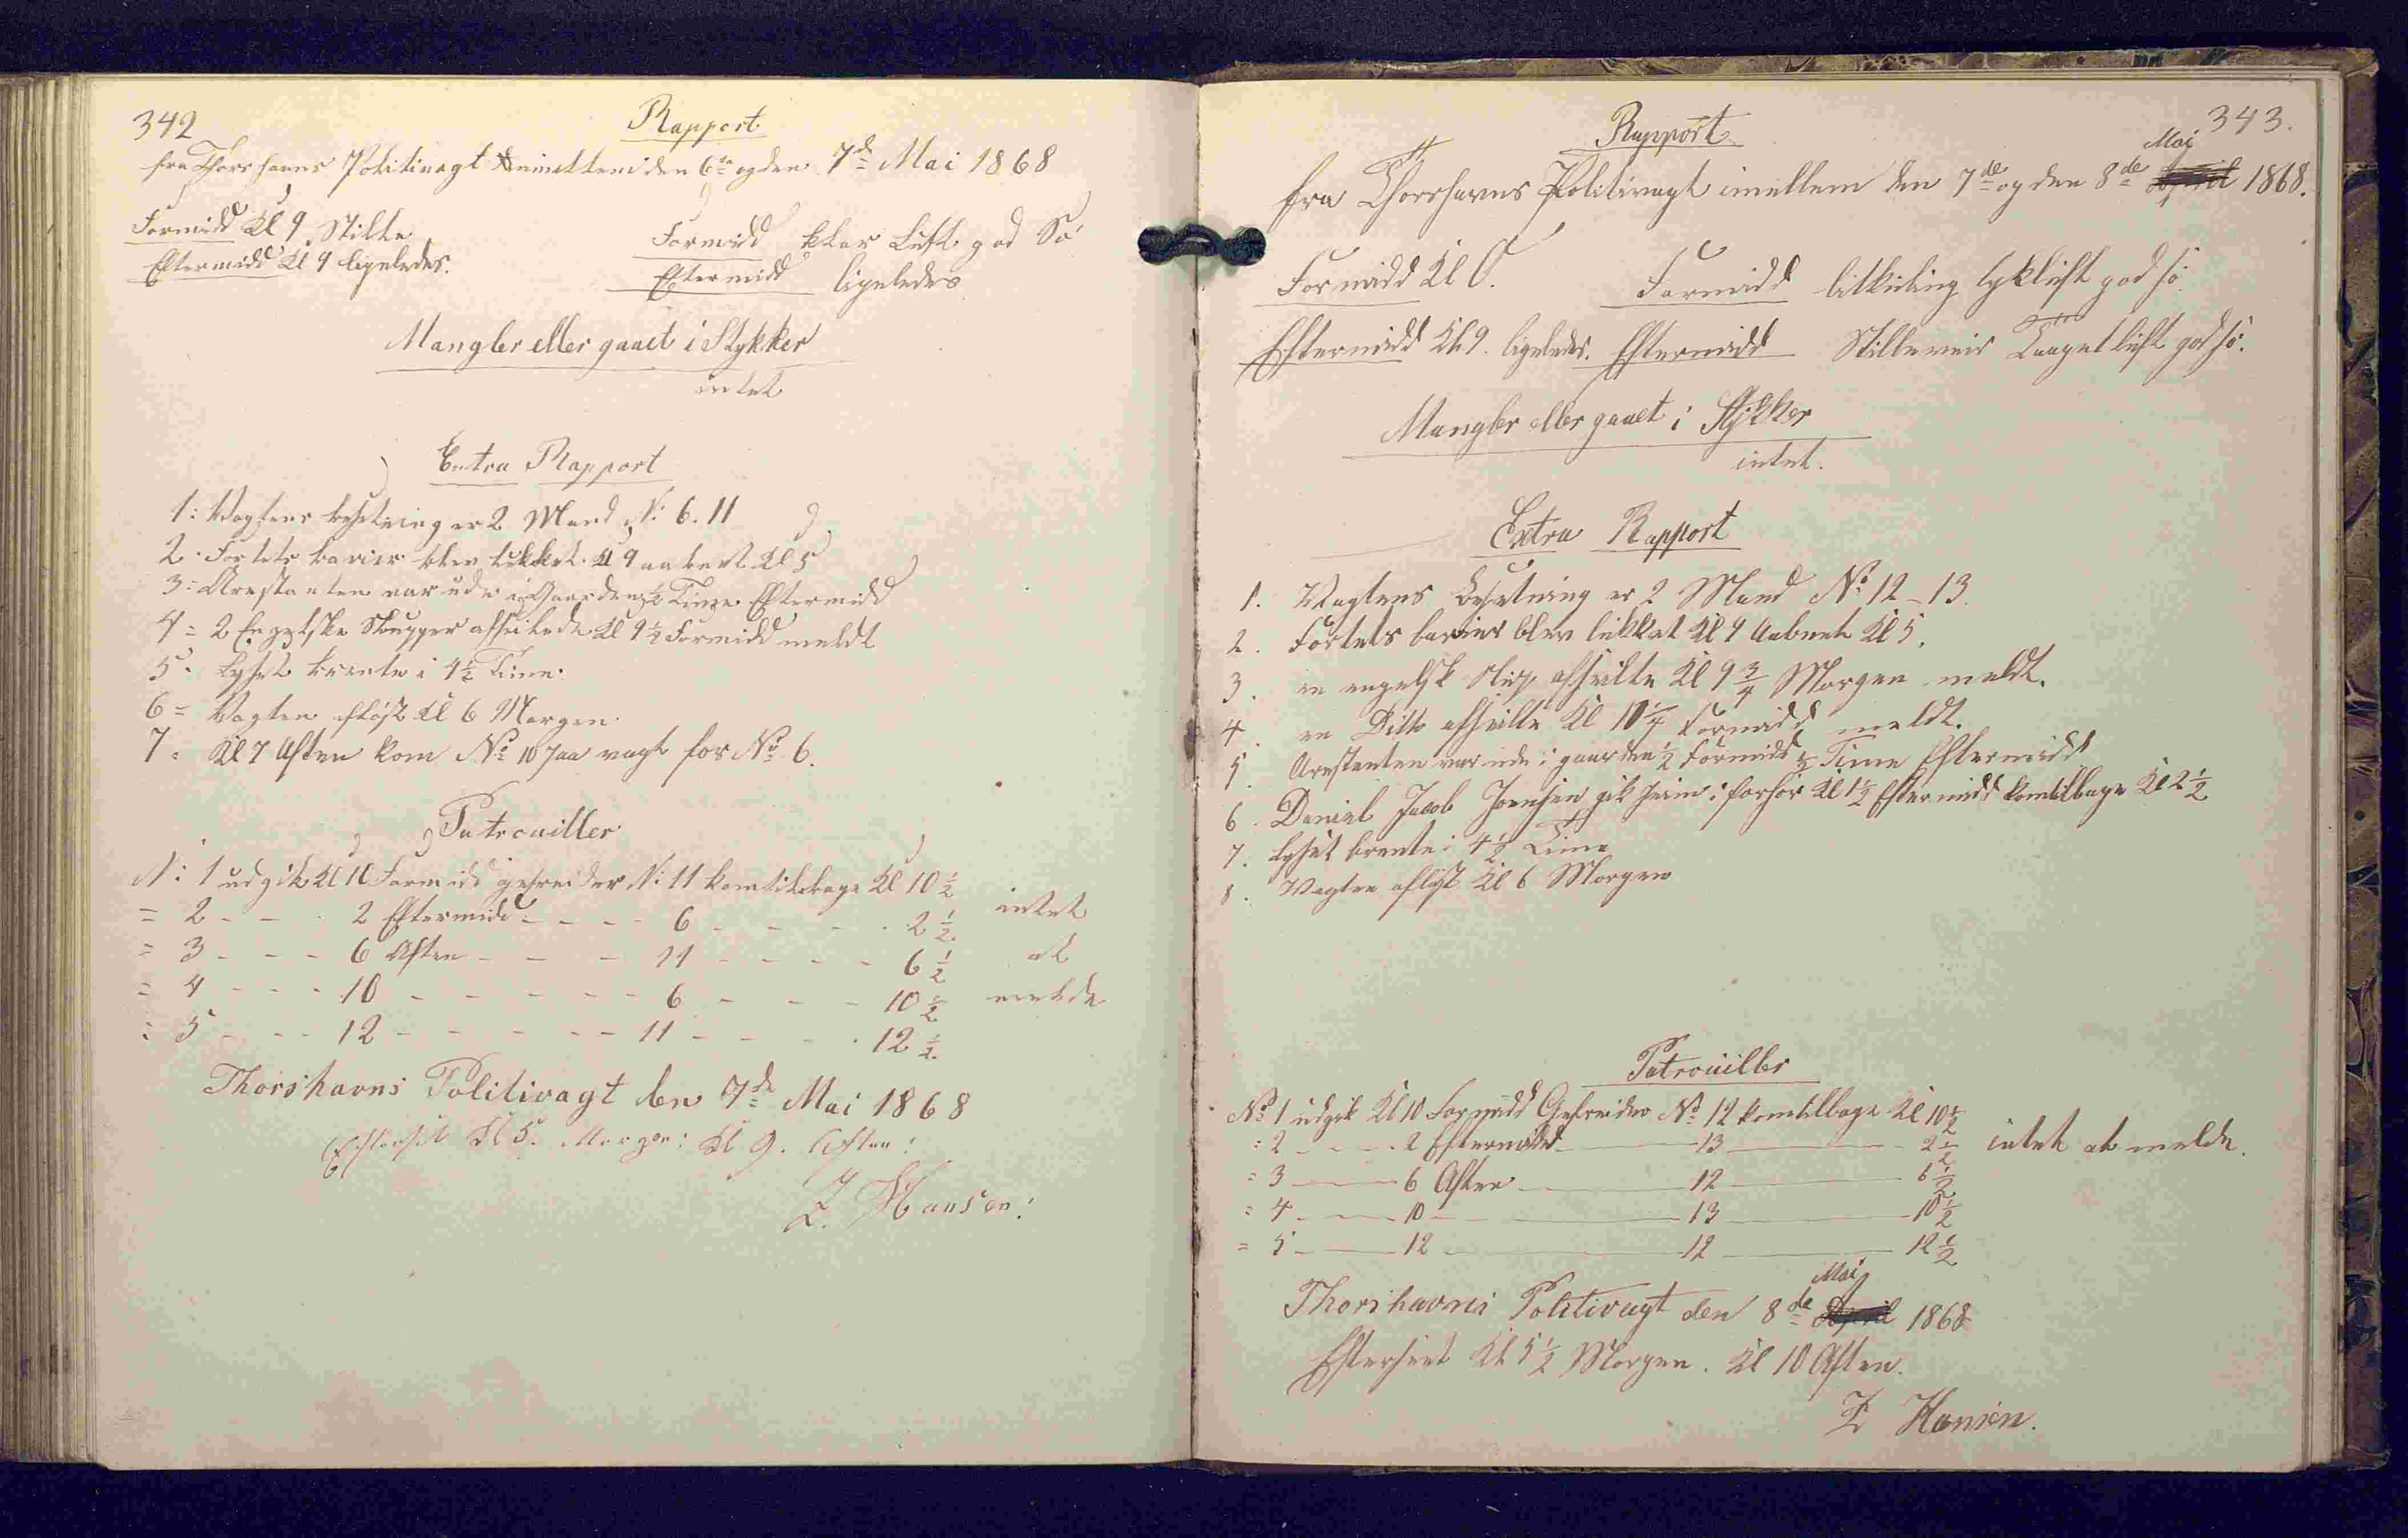 342
Rapport
fra Thorshavns Politivagt imellem den 6te og den 7de Mai 1868
Formidd Kl 9 Stille
Formidd klar Luft god Sö
Eftermidd Kl 9 ligeledes.
Eftermidd ligeledes
Mangler eller gaaet i Stykker
intet
Extra Rapport
1: Vagtens besetning er 2 Mand N: 6. 11
2. Fortets barier blev lukket Kl 9 aabent Kl 5
3= Arestanten var ude i Gaarden ½ Time Eftermidd
4= 2 Engelske Slupper afseilede Kl 9½ Formidd meldt
5. Lyset brente i 4½ Time.
6= Vagten aflöst Kl 6 Morgen.
7. Kl 7 Aften kom No 10 paa vagt for No 6.
Patrouiller
N: 1 udgik Kl 10 Formidd gefreider N: 11 kom tilbage Kl 10½
= 2 - - - 2 Eftermidd - - - - 6 - - - - 2½ intet
= 3 - - - 6 Aften - - - 11 - - - - 6½ at
= 4 - - - 10 - - - - - 6 - - - 10½ melde
: 5 - - - 12 - - - - - 11 - - - 12½
Thorshavns Politivagt den 7de Mai 1868
Efterseet Kl 5. Morgen: Kl 9. Aften:
Z. Hansen:
343.
Rapport
Mai
fra Thorshavns Politivagt imellem den 7de og den 8de April 1868.
Formidd Kl O.
Formidd lykluft god sö.
Eftermidd Kl 9. ligeledes. Eftermidd Stilleveir Taaget luft god sö.
Mangler eller gaaet i Stykker
intet.
Extra Rapport
1. Vagtens Besetning er 2 Mand No 12 - 13.
2. Fortets barier blev lukket Kl 9 Aabnet Kl 5.
3. en engelsk Slup afseilte Kl 9¾ Morgen meldt.
4 en Ditto afseilte Kl 10¼ Formidd meldt.
5. Arestanten var ude i gaarden ½ Formidd ½ Time Eftermidd
6. Danial Jacob Joensen gik herin i forhör Kl 1½ Eftermidd kom tilbage Kl 2½
7. Lyset brente i 4½ Time
8. Vagten aflöst Kl 6 Morgen
Patrouiller
No 1 udgik Kl 10 Formidd Gefreider No 12 kom tilbage Kl 10½
= 2 - - - - 2 Eftermidd - 13 - 2½ intet at melde.
= 3 - 6 Aften - 12 - 6½
= 4 - 10 - 13 - 10½
= 5 - 12 - 12 - 12½
Mai
Thorshavns Politivagt den 8de April 1868
Efterseet Kl 5½ Morgen. Kl 10 Aften.
Z Hansen.